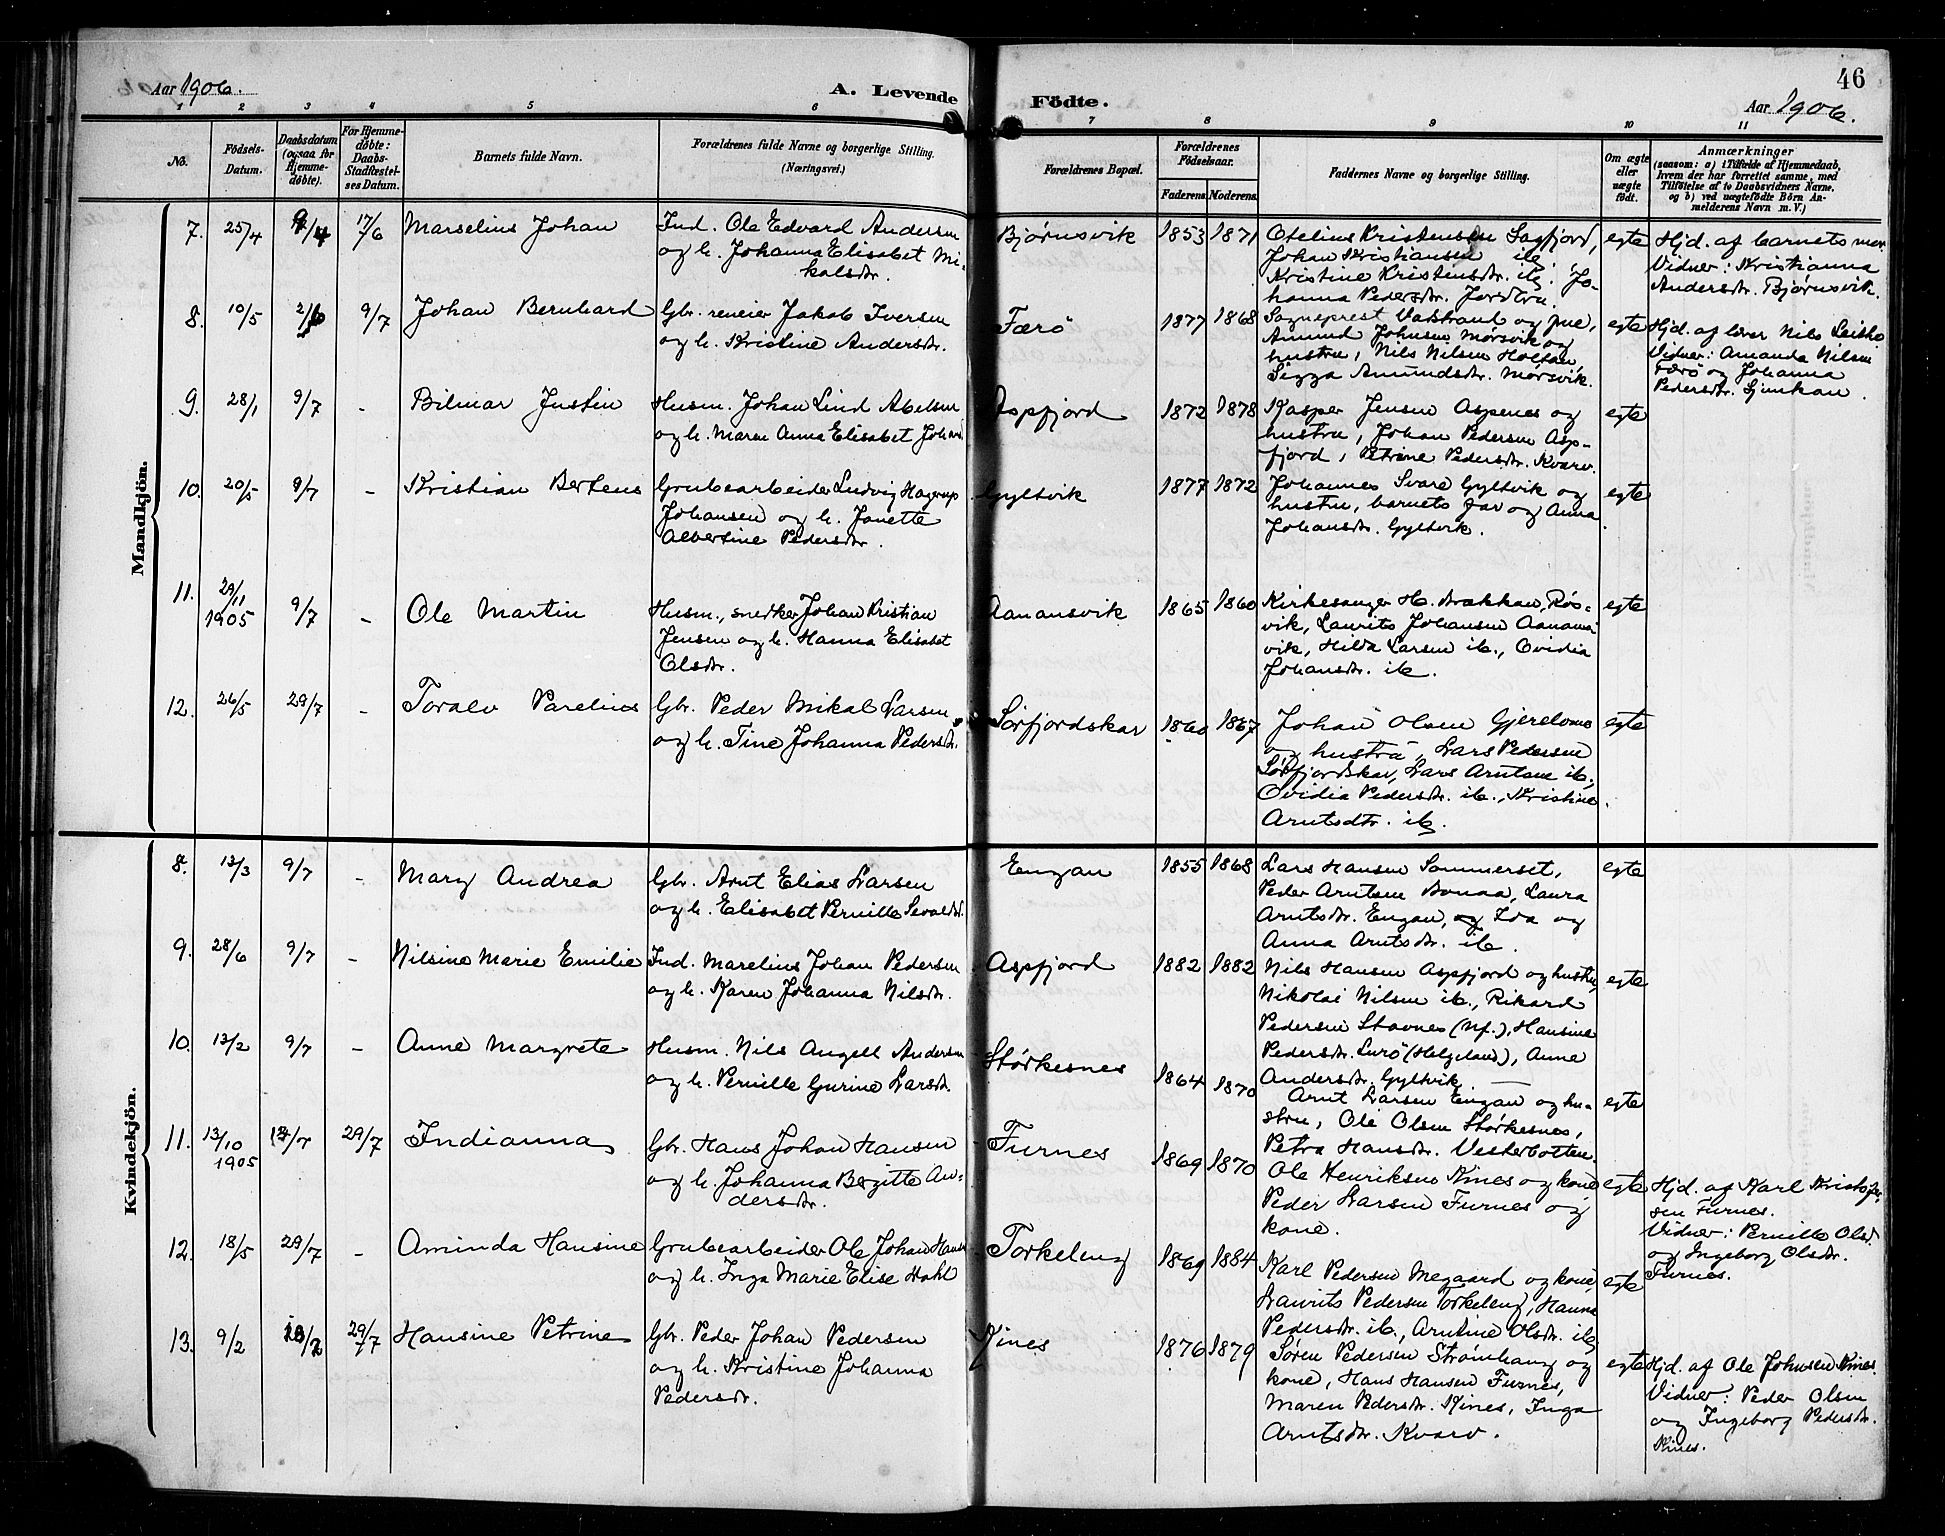 46
Aar 1906.
A. Levende Födte.
Aar 1906.
1 2 3 4 5 6 7 8 9 10 11
No.
Födsels-Datum.
Daabsdatum (ogsaa for Hjemme-döbte).
For Hjemme-döbte: Daabs-Stadfæstel-ses Datum.
Barnets fulde Navn.
Forældrenes fulde Navne og borgerlige Stilling. (Næringsvei.)
Forældrenes Bopæl.
Forældrenes Födselsaar.
Faderens Moderens
Faddernes Navne og borgerlige Stilling.
Om ægte eller uægte födt.
Anmærkninger
(saasom: a) i Tilfælde af Hjemmedaab,
hvem der har forrettet samme, med
Tilföielse af to Daabsvidners Navne.
og b) ved uægtefödte Börn An-
melderens Navn m. V.)
Mandkjön.
7. 25/4 17/6 Marselius Johan
Ind. Ole Edvard Andersen
og h. Johanna Elisabet Mi-
kalsdtr.
Bjørnsvik 1853 1871
Otelius Kristensen Sagfjord,
Johan Kristiansen ib.
Kristine Kristensdtr. ib. Jo-
hanna Pedersdtr. Jordbru.
egte
Hjd. af barnets mor.
Vidner: Kristianna
Andersdtr. Bjørnsvik.
8. 10/5 2/6 9/7 Johan Bernhard
Gbr. reneier Jakob Iversen
og h. Kristine Andersdtr.
Færö 1877 1868
Sogneprest Vadstrand og frue,
Amund Johnsen Mørsvik og
hustru, Nils Nilsen Holtan,
Sigga Amundsdtr. Mørsvik.
egte
Hjd. af lærer Nils
Vidner: Amanda Nilsen
Færö og Johanna
Pedersdtr.
9. 28/1 9/7 - Bilmar Justin
Husm. Johan Lind Abelsen
og h. Maren Anna Elisabet Johansd.
Aspfjord 1872 1878
Kasper Jensen Aspenes og
hustru, Johan Pedersen Asp-
fjord, Petrine Pedersdtr. Kvarv.
egte
10. 20/5 9/7 - Kristian Bertens
Grubearbeider Ludvig Hagerup
Johansen og h. Janette
Albertine Pedersdtr.
Gyltvik 1877 1872
Johannes Svare Gyltvik og
hustru, barnets far og Anna
Johansdtr. Gyltvik.
egte
11. 29/11 1905 9/7 - Ole Martin
Husm., snedker Johan Kristian
Jensen og h. Hanna Elisabet
Olsdtr.
Aanansvik 1865 1860
Kirkesanger H. Brækkan, Røs-
vik, Laurits Johansen Aanans-
vik, Hilda Larsen ib., Ovidia
Johansdtr. ib.
egte
12. 26/5 29/7 - Toralv Parelius
Gbr. Peder Mikal Larsen
og h. Tine Johanna Pedersdtr.
Sørfjordskar 1860 1867
Johan Olsen Gjerelvnes
og hustru, Lars Pedersen
Sørfjordskar, Lars Arntsen ib.,
Ovidia Pedersdtr. ib., Kristine
Arntsdtr. ib.
egte
Kvindekjön.
8. 13/3 9/7 - Mary Andrea
Gbr. Arnt Elias Larsen
og h. Elisabet Pernille Sevaldsd.
Engan 1855 1868
Lars Hansen Sommerset,
Peder Arntsen Bonaa, Laura
Arntsdtr. Engan, og Ida og
Anna Arntsdtr. ib.
egte
9. 28/6 9/7 - Nilsine Marie Emilie
Ind. Marelius Johan Pedersen
og h. Karen Johanna Nilsdtr.
Aspfjord 1882 1882
Nils Hansen Aspfjord og hustru,
Nikolai Nilsen ib., Rikard
Pedersen Stavnes (Nf.), Hansine
Pedersdtr. Lurö (Helgeland), Anne
Andersdtr. Gyltvik.
egte
10. 13/2 9/7 - Anne Margrete
Husm. Nils Angell Andersen
og h. Pernille Gurine Larsdtr.
Størkesnes 1864 1870
Arnt Larsen Engan og hu-
stru, Ole Olsen Størkesnes,
Petra Hansdtr. Vesterbotten.
egte
11. 13/10 1905 29/7 Indianna
Gbr. Hans Johan Hansen
og h. Johanna Bergitte An-
dersdtr.
Furnes 1869 1870
Ole Henriksen Kines og kone
Peder Larsen Furnes og
kone.
egte
Hjd. af Karl Kristofer-
sen Furnes.
Vidner: Pernille Olsd.
og Ingeborg Olsdtr.
Furnes.
12. 18/5 29/7 - Aminda Hansine
Grubearbeider Ole Johan Hansen
og h. Inga Marie Elise Hahl
Torkeleng 1869 1884
Karl Pedersen Megaard og kone,
Laurits Pedersen Torkeleng, Hanna
Pedersdtr. ib., Arntine Olsdtr. ib.
egte
13. 9/2 29/7 Hansine Petrine
Gbr. Peder Johan Pedersen
og h. Kristine Johanna
Pedersdtr.
Kines 1876 1879
Søren Pedersen Strømhaug og
kone, Hans Hansen Furnes,
Maren Pedersdtr. Kines, Inga
Arntsdtr. Kvarv.
egte
Hjd. af Ole Johnsen Kines.
Vidner: Peder Olsen
og Ingeborg Pedersdtr.
Kines.